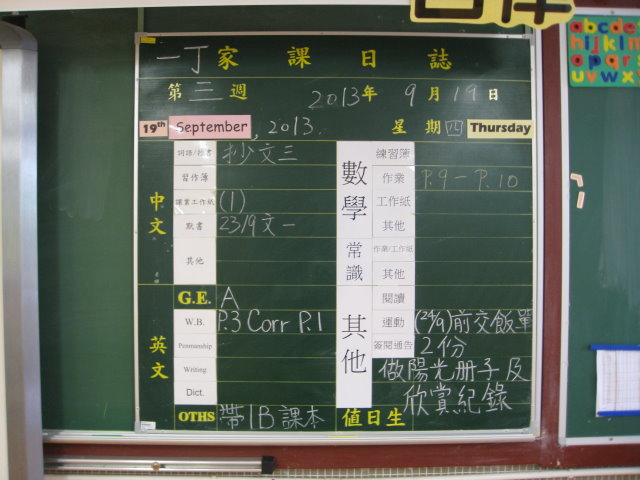 一丁家課日誌
第三週 2013年9月19日
19th September, 2013. 星期四 Thursday
中文
詞語/抄書 抄文三
習作簿
課業工作紙 (1)
默書 23/9文一
其他
英文
G.E. A
W.B. P.3 Corr P.1
Penmanship
Writing
Dict.
OTHS 帶1B課本
數學
練習簿
作業 P.9-P.10
工作紙
其他
常識
作業/工作紙
其他
其他
閱讀
運動 (24/9)前交飯單
簽閱通告 2份
做陽光册子及
欣賞紀錄
值日生
abcde
hijklm
opqrs
uvwx